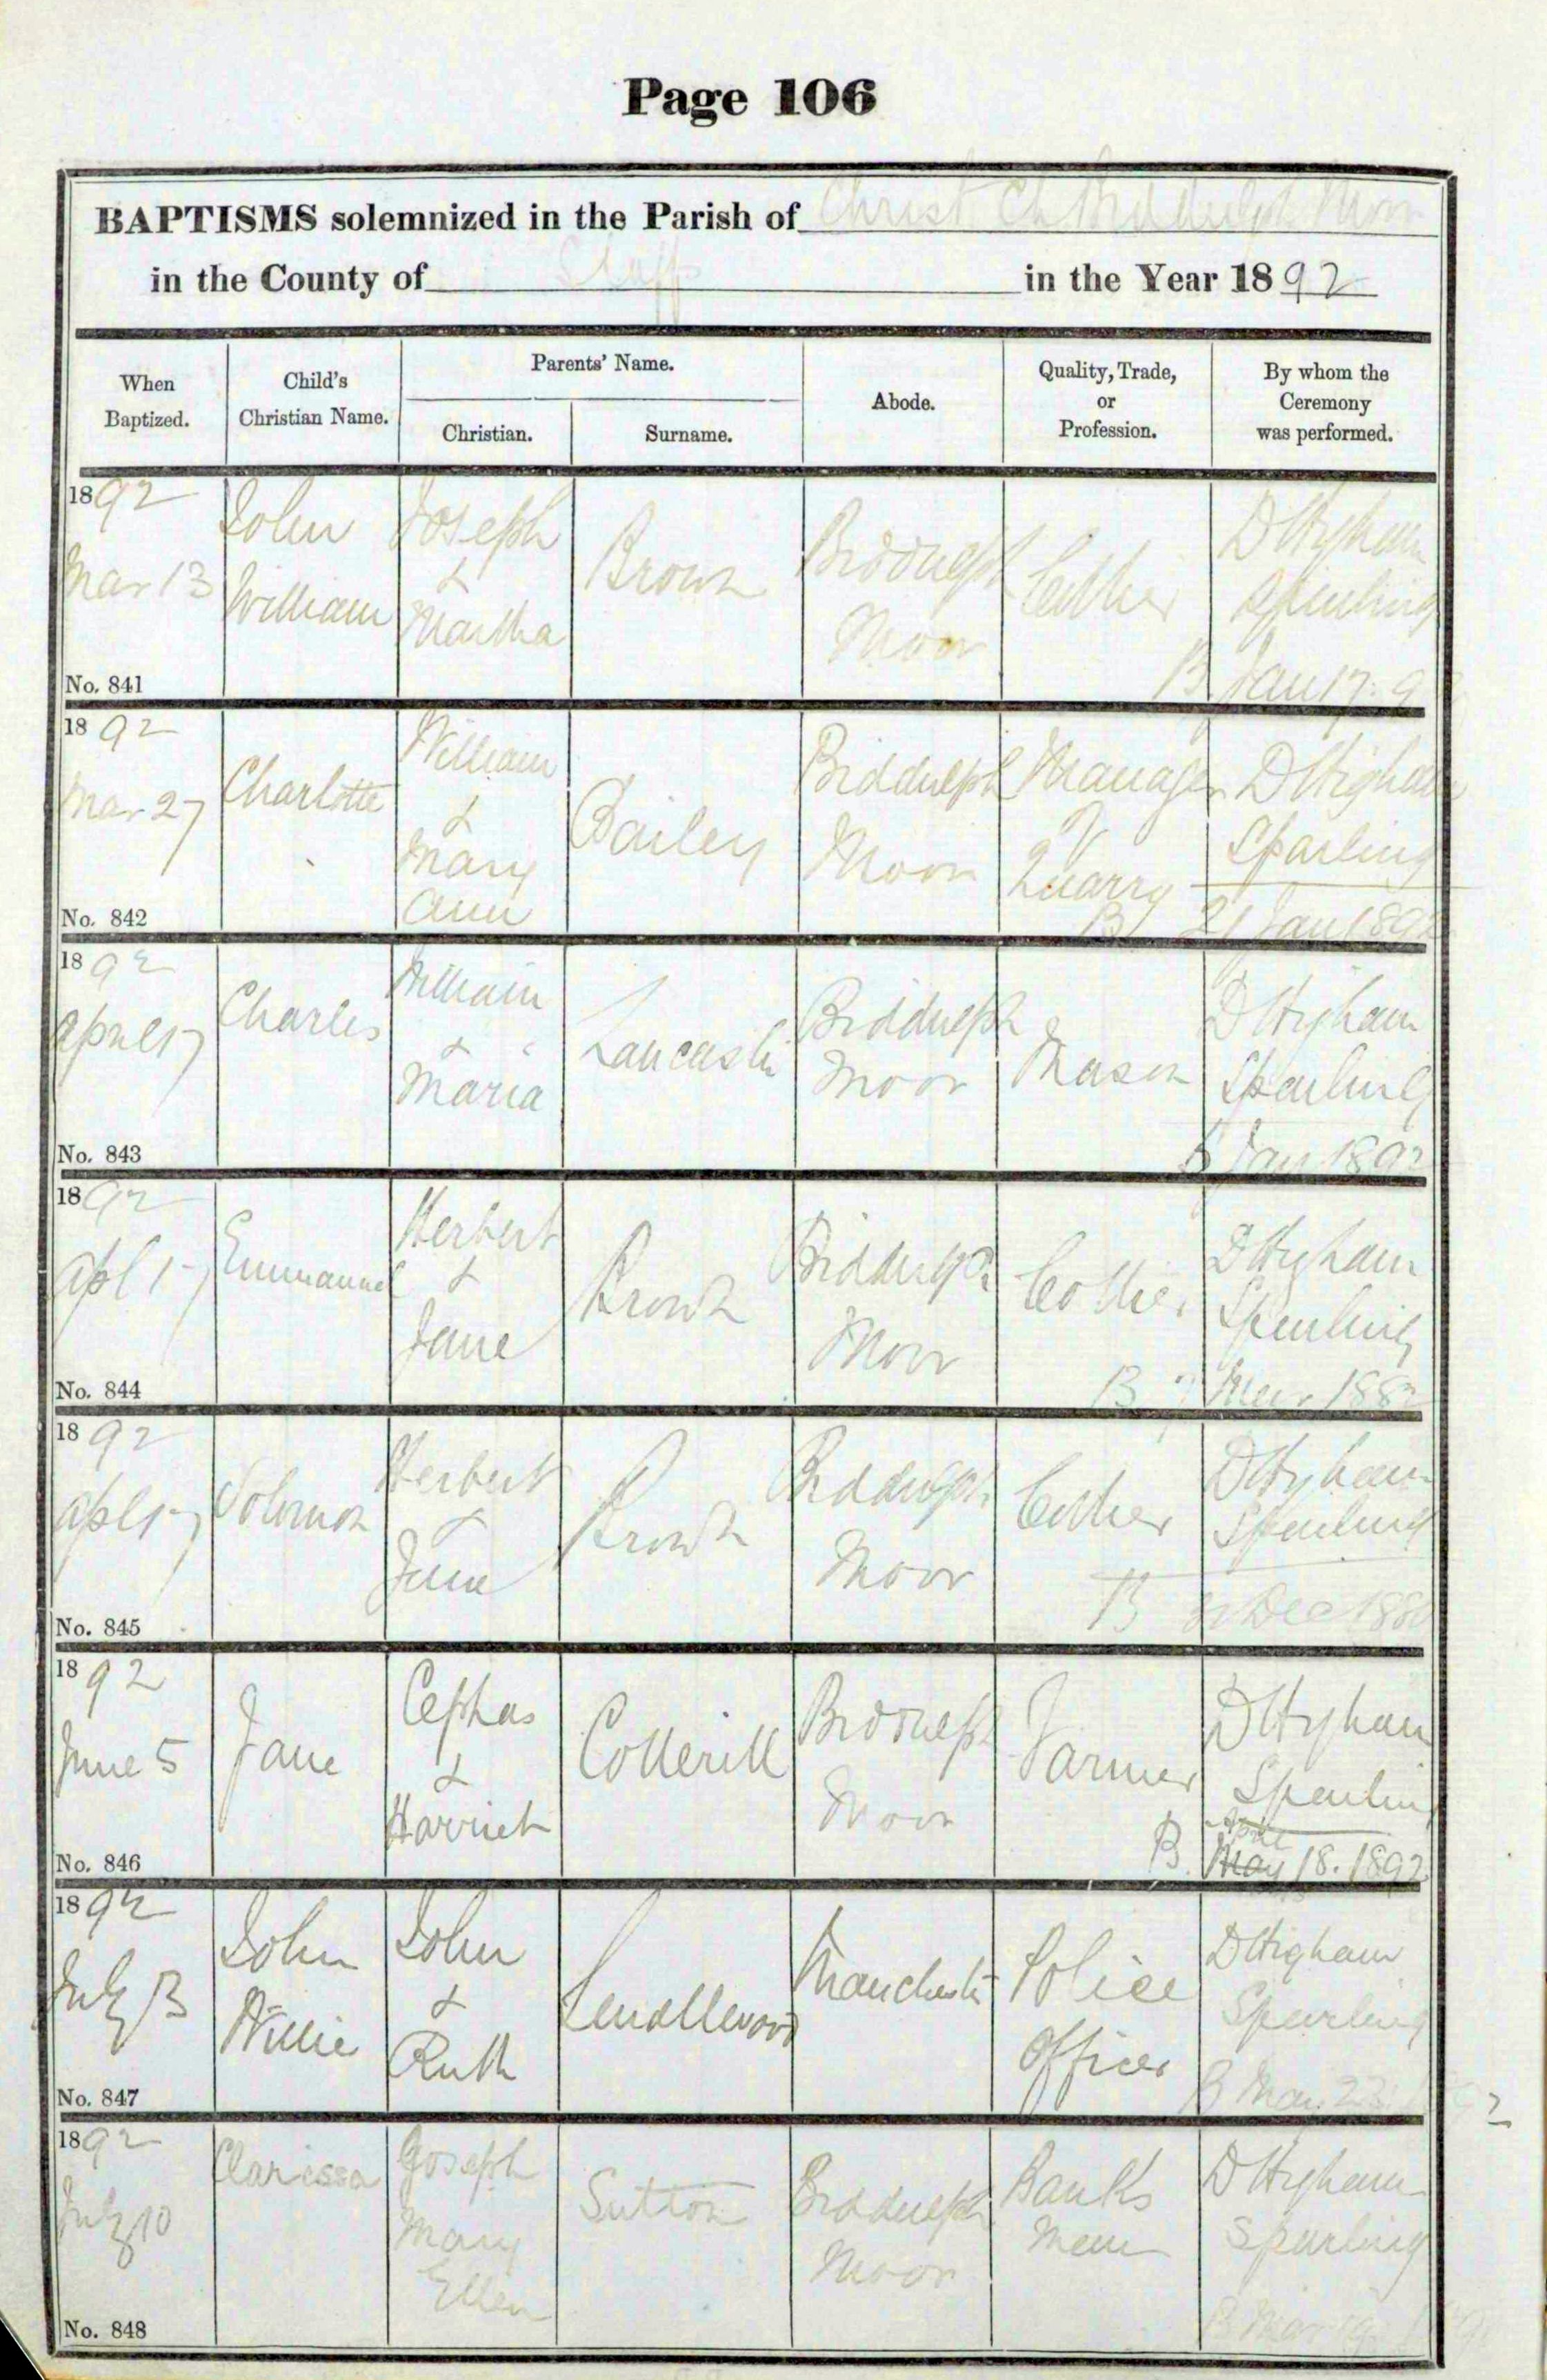 Page 106
BAPTISMS solemnized in the Parish of Christ Ch Biddulph Moor
in the County of Staff in the Year 1892
When Baptized.
Child's Christian Name.
Parents' Name.
Christian.
Surname.
Abode.
Quality, Trade, or Profession.
By whom the Ceremony was performed.
1892
Mar 13
No. 841
John
William
Joseph
&
Martha
Brown
Biddulph
Moor
Collier
D Higham
Sparling
B Jan 17. 9
1892
Mar 27
No. 842
Charlotte
William
&
Mary
Ann
Bailey
Biddulph
Moor
Manager
Quarry
D Higham
Sparling
B 21 Jan 1892
1892
April 17
No. 843
Charles
William
&
Maria
Lancaster
Biddulph
Moor
Mason
D Higham
Sparling
Jan 1892
1892
Apl 17
No. 844
Emmanuel
Herbert
&
Jane
Brown
Biddulph
Moor
Collier
D Higham
Sparling
B Mar 188
1892
Apl 17
No. 845
Solomon
Herbert
&
Jane
Brown
Biddulph
Moor
Collier
D Higham
Sparling
B Dec 188
1892
June 5
No. 846
Jane
Cephas
&
Harriet
Cotterill
Biddulph
Moor
Farmer
D Higham
Sparling
B. May 18. 1892
1892
July 3
No. 847
John
Willie
John
&
Ruth
Manchester
Police
Officer
D Higham
Sparling
B May 23
1892
July 10
No. 848
Clarissa
Joseph
Mary
Ellen
Sutton
Biddulph
Moor
Banks
Man
D Higham
Sparling